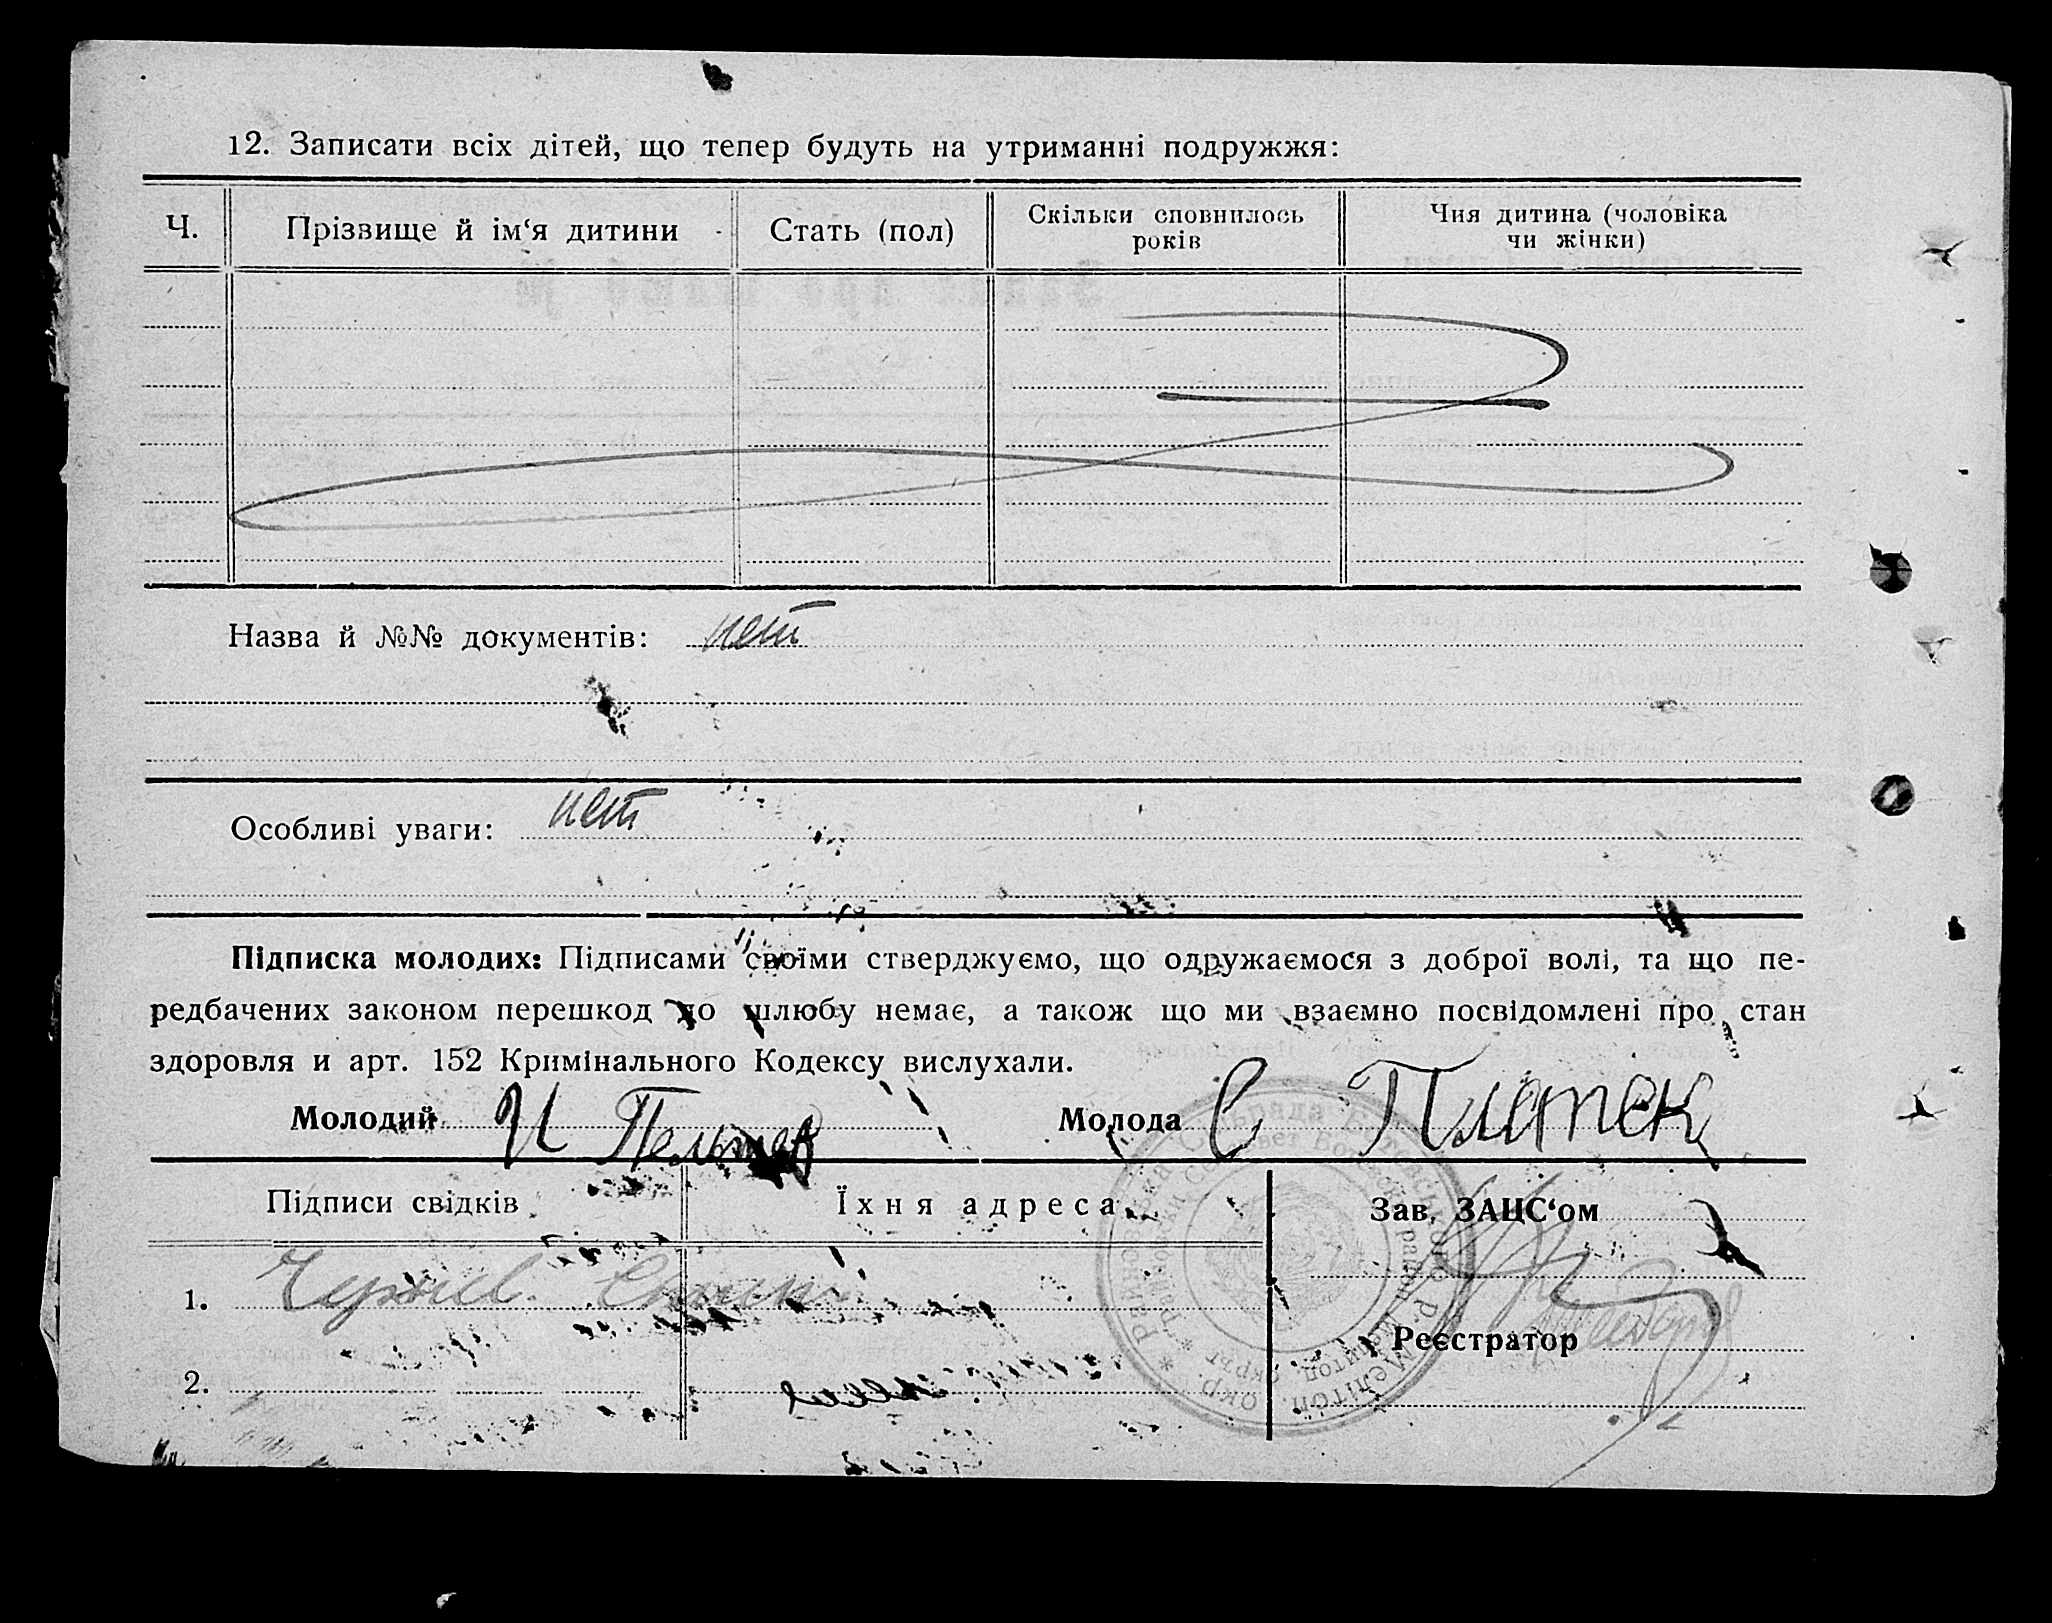 12. Записати всіх дітей, що тепер будуть на утриманні подружжя:
Ч. Прізвище й ім‘я дитини Стать (пол) Скільки сповнилось років Чия дитина (чоловіка чи жінки)
Назва й №№ документів: нет
Особливі уваги: нет
Підписка молодих: Підписами своїми стверджуємо, що одружаємося з доброї волі, та що пе-
редбачених законом перешкод до шлюбу немає, а також що ми взаємно посвідомлені про стан
здоровля и арт. 152 Кримінального Кодексу вислухали.
Молодий И Молода С Платек
Підписи свідків Їхня адреса Зав. ЗАЦС‘ом
1.
Реєстратор
2.